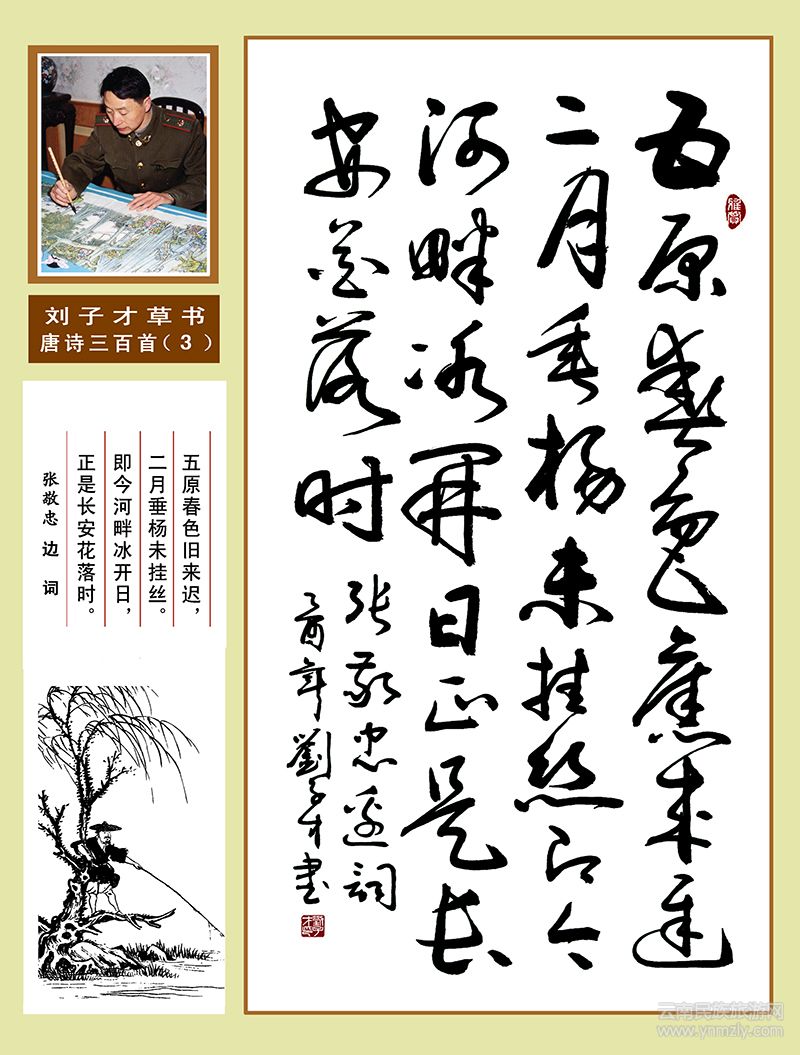 刘子才草书
唐诗三百首（3）
五原春色旧来迟，
二月垂杨未挂丝。
即今河畔冰开日，
正是长安花落时。
张敬忠 边词
五原春色旧来迟
二月垂杨未挂丝即今
河畔冰开日正是长
安花落时
张敬忠边词
乙酉年劉子才书
云南民族旅游网
www.ynmzly.com